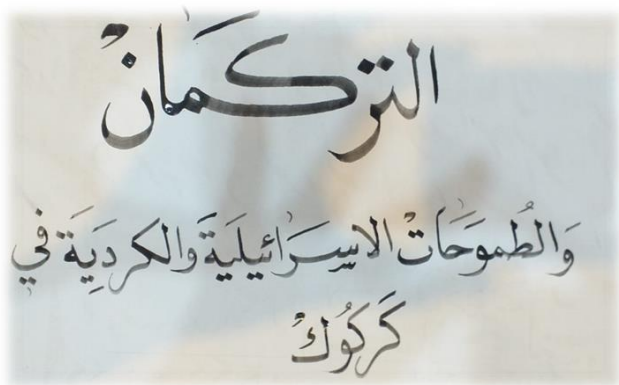 التركمانْ
وَالطُموَحَات الاسِرَائيليَة والكردِيَة في
كَركُوك